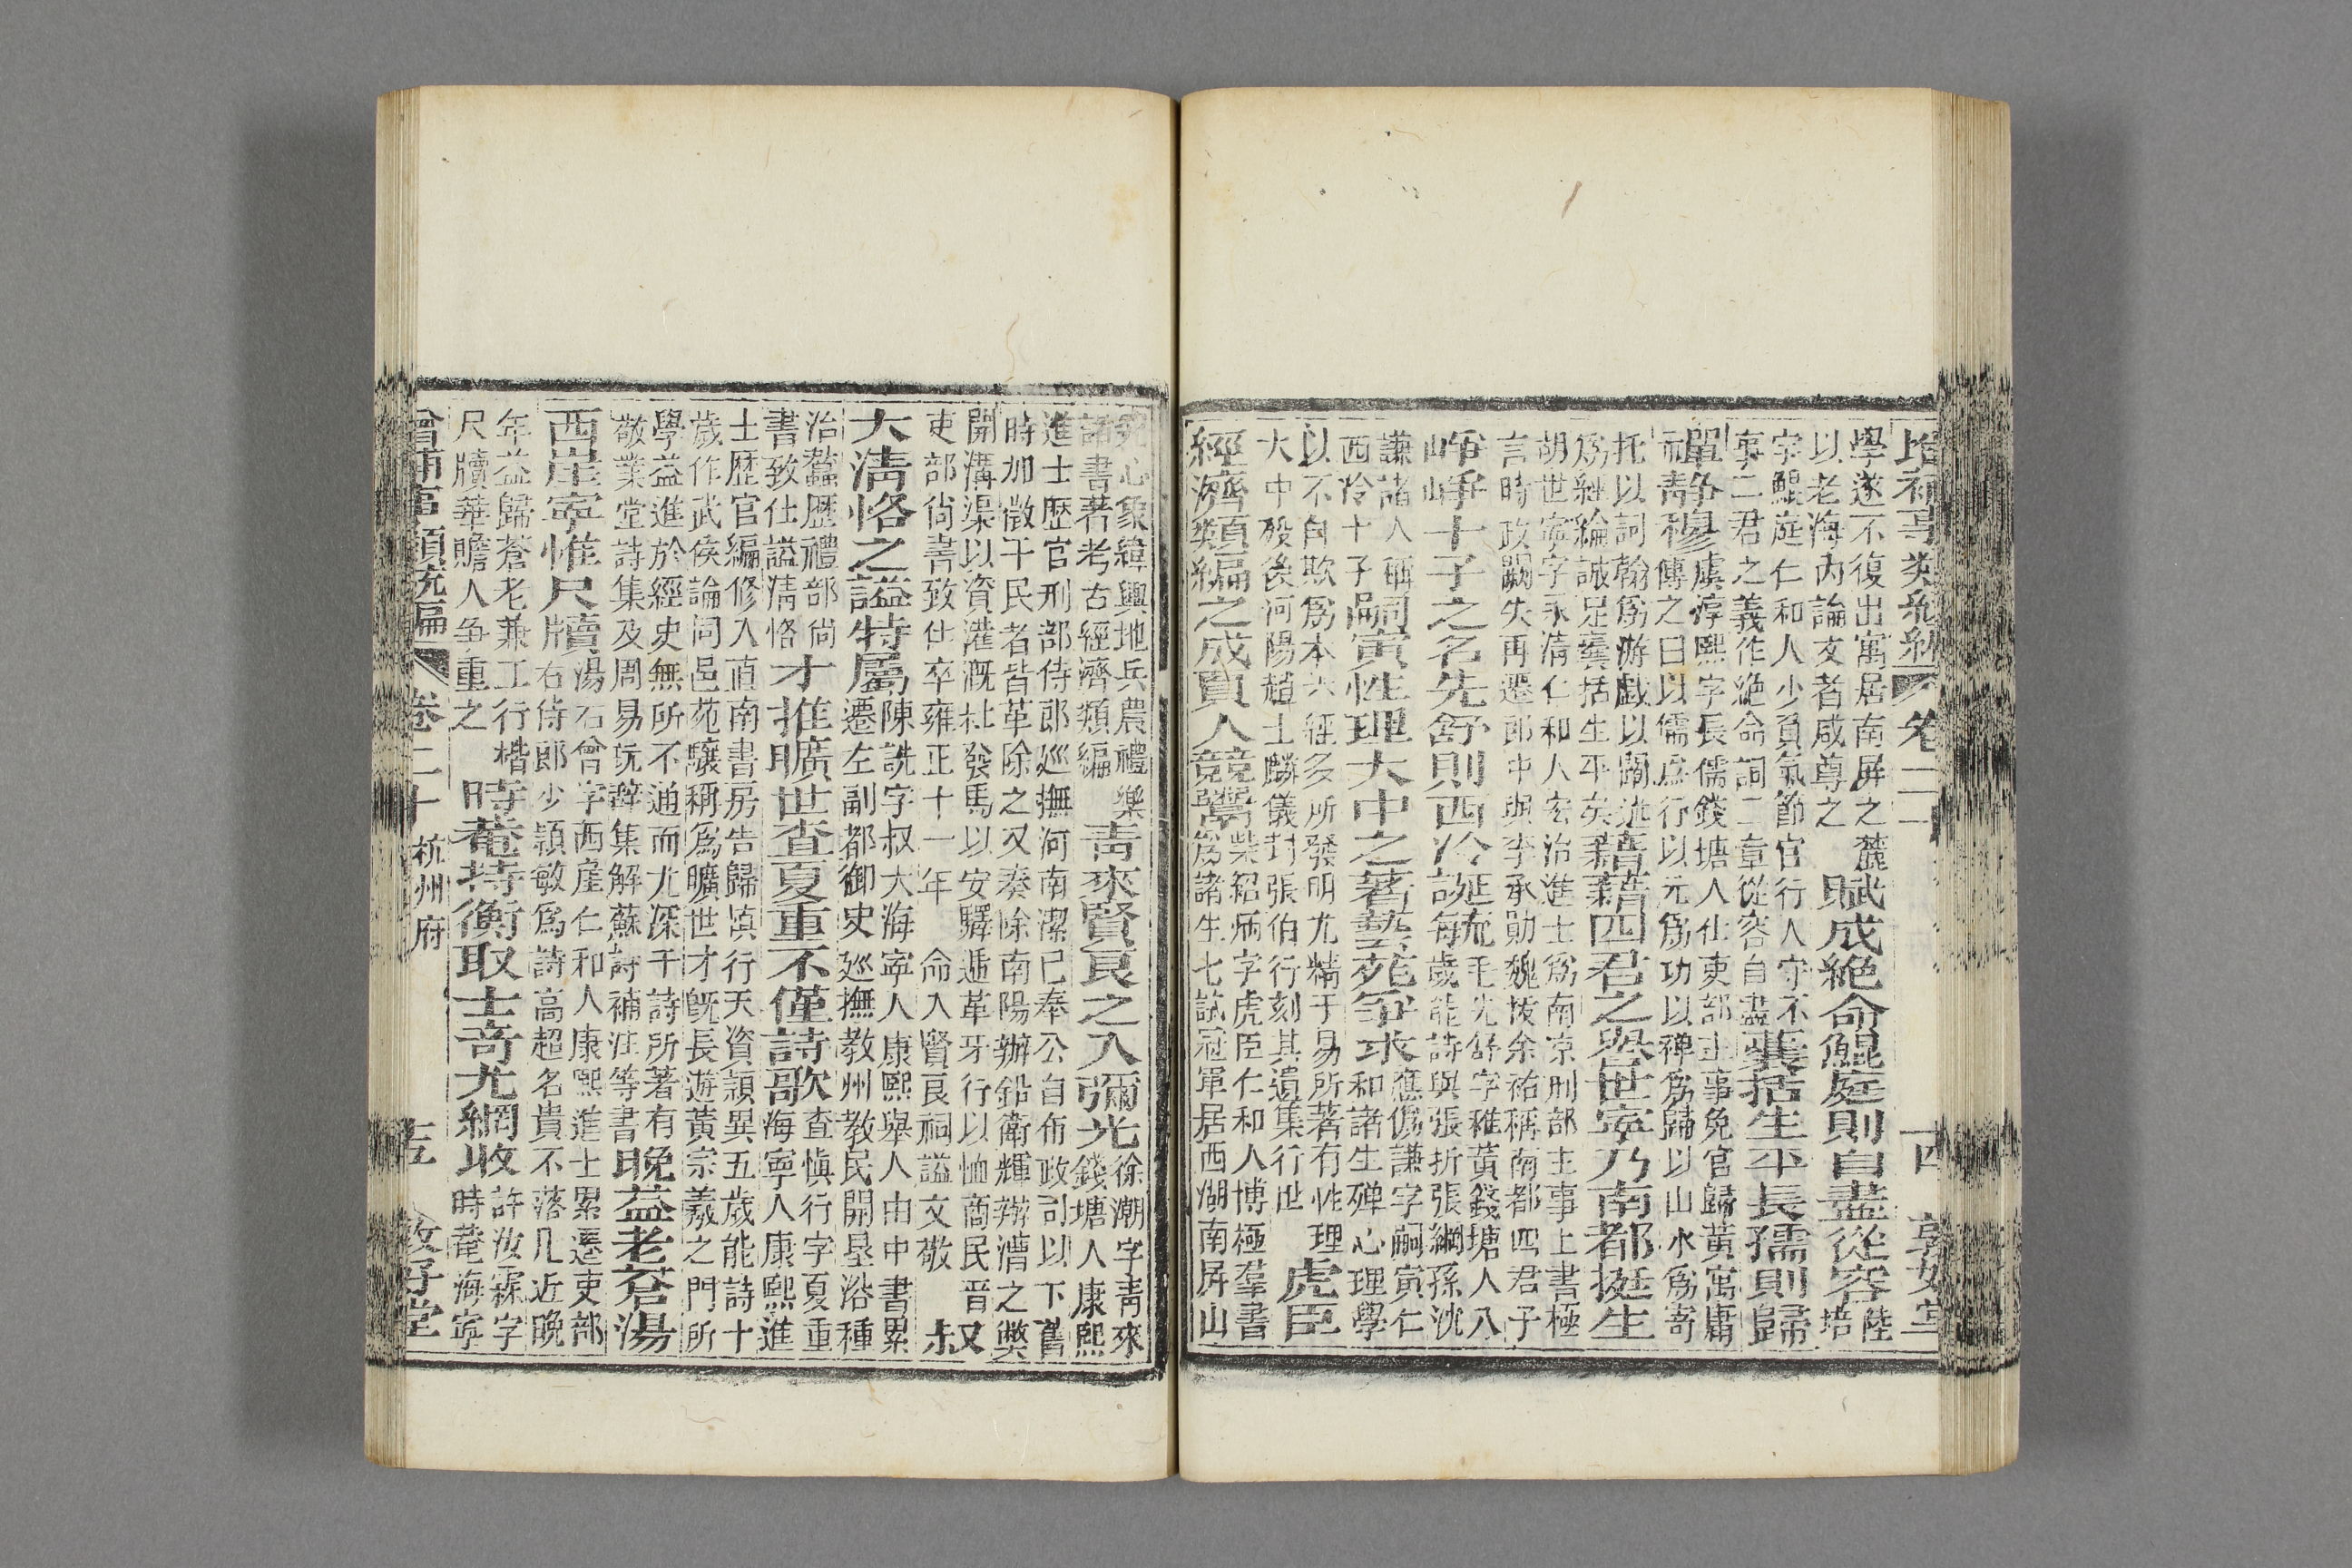 增補事類統編 卷二十 十四 敦好堂
學遂不復出寓居南屏之麓
以老海內論文者咸尊之
賦成絶命鯤庭則自盡從容
陸培
字鯤庭仁和人少負氣節官行人守不
事二君之義作絶命詞二章從容自盡
囊括生平長孺則歸
單靜穆
虞淳熙字長儒錢塘人仕吏部主事免官歸黃寓庸
而靜穆傳之曰以儒爲行以元爲功以禪爲歸以山水爲寄
托以詞翰爲游戯以
爲經綸誠足囊括生平矣
藉藉四君之譽世寧乃南都挺生
胡世寧字永清仁和人宏治進士爲南京刑部主事上書極
言時政闕失再遷郎中與李承勛魏校余祐稱南都四君子
崢崢十子之名先舒則西冷誕毓
毛先舒字稚黃錢塘人八
每歲能詩與張折張綱孫沈
謙諸人稱
西冷十子
嗣寅性理大中之著藝苑爭求
應偽謙字嗣寅仁
和諸生殫心理學
以不自欺爲本六經多所發明尤精于易所著有性理
大中殁後河陽趙士麟儀封張伯行刻其遺集行世
虎臣
經濟類編之成貢人競譽
柴紹炳字虎臣仁和人博極羣書
爲諸生七試冠軍居西湖南屏山
究心象緯輿地兵農禮樂
諸書著考古經濟類編
靑來賢良之入彌光
徐潮字靑來
錢塘人康熙
進士歴官刑部侍郎巡撫河南潔己奉公自布政司以下舊
時加徵于民者皆革除之又奏除南陽辦鉛衛輝辦漕之獘
開溝渠以資灌漑杜發馬以安驛遞革牙行以恤商民晉
吏部尚書致仕卒雍正十一年 命入賢良祠謚文敬
叔
大淸恪之謚特屬
陳詵字叔大海寧人康熙舉人由中書累
遷左副都御史廵撫教州教民開墾浴種
治蠶歴禮部尙
書致仕謚淸恪
才推曠世查夏重不僅詩歌
查愼行字夏重
海寧人康熙進
士歴官編修入直南書房告歸愼行天資頴異五歲能詩十
歲作武侯論同邑范驤稱爲曠世才旣長遊黃宗羲之門所
學益進於經史無所不通而尤深于詩所著有
敬業堂詩集及周易玩辭集解蘇詩補注等書
晩益老蒼湯
西崖寧惟尺牘
湯右曾字西崖仁和人康熙進士累遷吏部
右侍郎少頴敏爲詩高超名貴不落几近晩
年益歸蒼老兼工行楷
尺牘華贍人争重之
時菴持衡取士奇尤網收
許汝霖字
時菴海寧
增補事類統編 卷二十 杭州府 十五 敦好堂